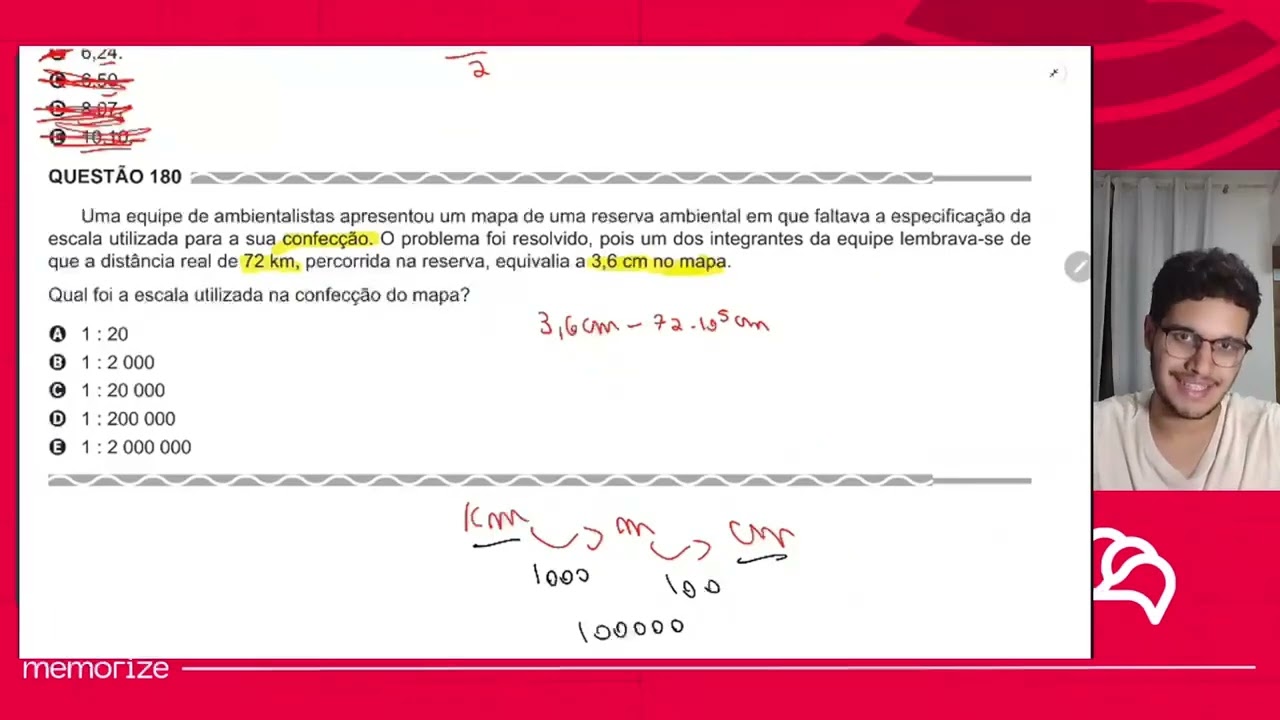 6,24.
2
C 6,50
D 8,07.
E 10,10.
QUESTÃO 180
Uma equipe de ambientalistas apresentou um mapa de uma reserva ambiental em que faltava a especificação da
escala utilizada para a sua confecção. O problema foi resolvido, pois um dos integrantes da equipe lembrava-se de
que a distância real de 72 km, percorrida na reserva, equivalia a 3,6 cm no mapa.
Qual foi a escala utilizada na confecção do mapa?
3,6cm - 72.10⁵cm
A 1 : 20
B 1 : 2 000
C 1 : 20 000
D 1 : 200 000
E 1 : 2 000 000
Km m cm
1000 100
100000
memorize